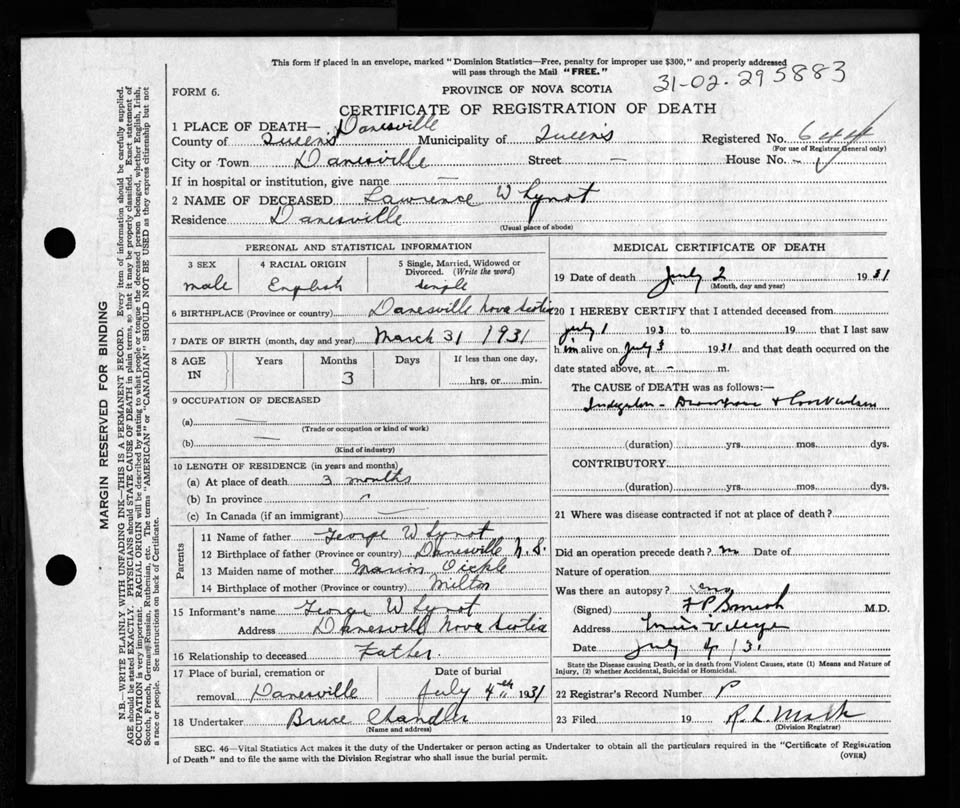 This form if placed in an envelope, marked "Dominion Statistics—Free, penalty for improper use $300," and properly addressed
will pass through the Mail "FREE."
31-02-295883
FORM 6.
PROVINCE OF NOVA SCOTIA
CERTIFICATE OF REGISTRATION OF DEATH
1 PLACE OF DEATH— Danesville
County of Queens Municipality of Queens Registered No. 644
(For use of Registrar General only)
City or Town Danesville Street — House No. -
If in hospital or institution, give name —
2 NAME OF DECEASED Lawrence W Lynot
Residence Danesville
(Usual place of abode)
PERSONAL AND STATISTICAL INFORMATION
3 SEX
male
4 RACIAL ORIGIN
English
5 Single, Married, Widowed or
Divorced. (Write the word)
single
6 BIRTHPLACE (Province or country) Danesville Nova Scotia
7 DATE OF BIRTH (month, day and year) March 31 1931
8 AGE
IN
Years
Months
3
Days
If less than one day,
hrs. or min.
9 OCCUPATION OF DECEASED
(a) —
(Trade or occupation or kind of work)
(b) —
(Kind of industry)
10 LENGTH OF RESIDENCE (in years and months)
(a) At place of death 3 months
(b) In province
(c) In Canada (if an immigrant) —
Parents
11 Name of father George W Lynot
12 Birthplace of father (Province or country) Danesville N. S.
13 Maiden name of mother Marion Oickle
14 Birthplace of mother (Province or country) Milton
15 Informant's name George W Lynot
Address Danesville Nova Scotia
16 Relationship to deceased Father.
17 Place of burial, cremation or
removal Danesville
Date of burial
July 4th 1931
18 Undertaker Bruce Chandler
(Name and address)
MEDICAL CERTIFICATE OF DEATH
19 Date of death July 2 1931
(Month, day and year)
20 I HEREBY CERTIFY that I attended deceased from
July 1 193 to 19 that I last saw
him alive on July 3 1931 and that death occurred on the
date stated above, at - m.
The CAUSE of DEATH was as follows:—
Indigestion -
(duration) yrs. mos. dys.
CONTRIBUTORY
(duration) yrs. mos. dys.
21 Where was disease contracted if not at place of death?
Did an operation precede death? no Date of
Nature of operation
Was there an autopsy?
(Signed) F P Smith M.D.
Address Mills Village
Date July 4 /31
State the Disease causing Death, or in death from Violent Causes, state (1) Means and Nature of
Injury, (2) whether Accidental, Suicidal or Homicidal.
22 Registrar's Record Number
23 Filed 19 R. L. Mack
(Division Registrar)
SEC. 46—Vital Statistics Act makes it the duty of the Undertaker or person acting as Undertaker to obtain all the particulars required in the "Certificate of Registration
of Death" and to file the same with the Division Registrar who shall issue the burial permit.
(OVER)
MARGIN RESERVED FOR BINDING
N.B.—WRITE PLAINLY WITH UNFADING INK—THIS IS A PERMANENT RECORD. Every item of information should be carefully supplied.
AGE should be stated EXACTLY. PHYSICIANS should STATE CAUSE OF DEATH in plain terms, so that it may be properly classified. Exact statement of
OCCUPATION is very important. RACIAL ORIGIN will be described by stating to what people or tongue the deceased person belonged, whether English, Irish,
Scotch, French, German, Russian, Ruthenian, etc. The terms "AMERICAN" or "CANADIAN" SHOULD NOT BE USED as they express citizenship but not
a race or people. See instructions on back of Certificate.